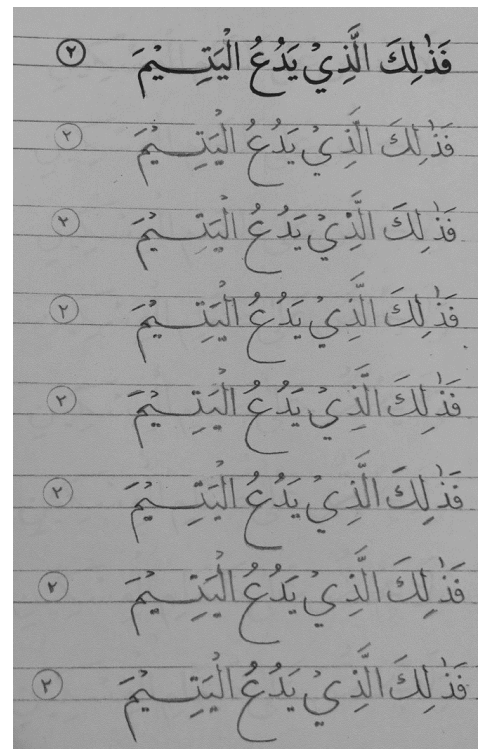 فَذٰلِكَ الَّذِيْ يَدُعُّ الْيَتِـيْمَ ٢
فَذٰلِكَ الَّذِيْ يَدُعُّ الْيَتِـيْمَ ٢
فَذٰلِكَ الَّذِيْ يَدُعُّ الْيَتِـيْمَ ٢
فَذٰلِكَ الَّذِيْ يَدُعُّ الْيَتِـيْمَ ٢
فَذٰلِكَ الَّذِيْ يَدُعُّ الْيَتِـيْمَ ٢
فَذٰلِكَ الَّذِيْ يَدُعُّ الْيَتِـيْمَ ٢
فَذٰلِكَ الَّذِيْ يَدُعُّ الْيَتِـيْمَ ٢
فَذٰلِكَ الَّذِيْ يَدُعُّ الْيَتِـيْمَ ٢